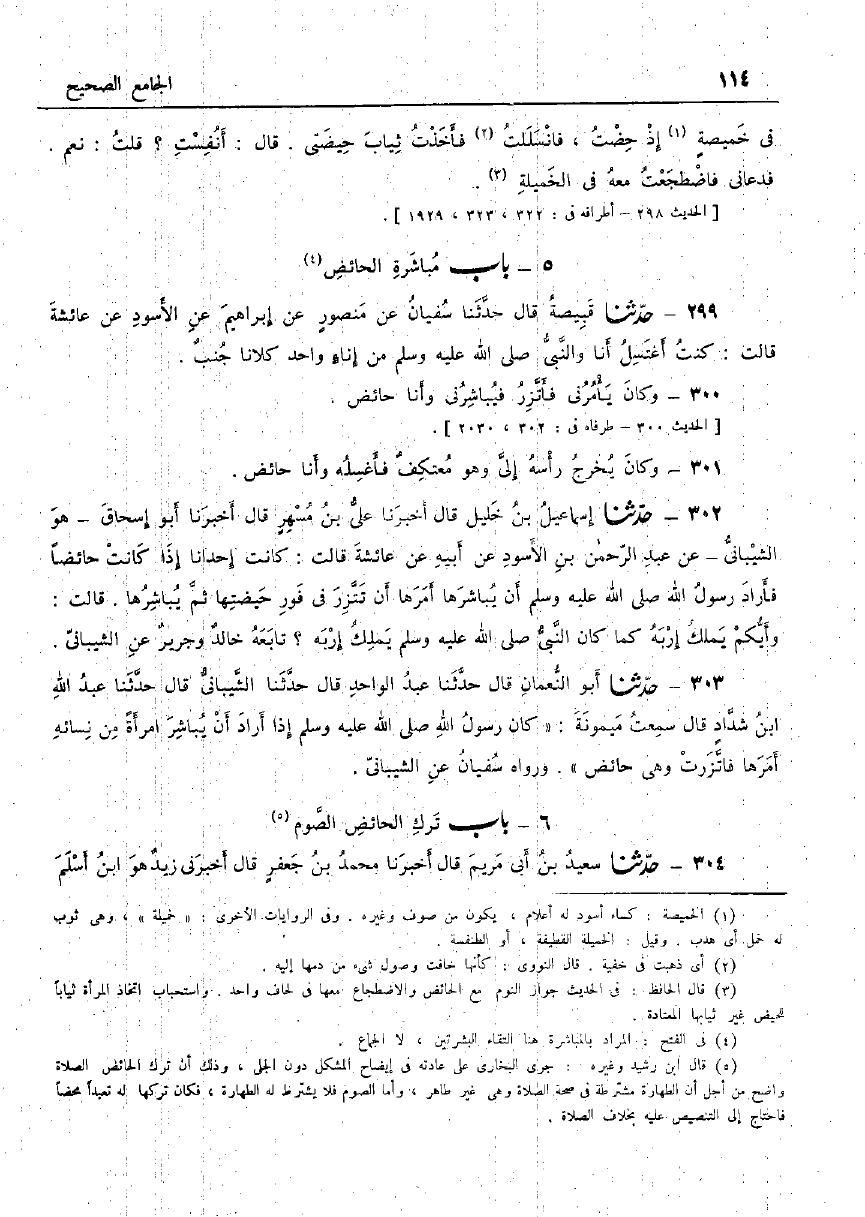 ١١٤
الجامع الصحيح
فى خَميصةٍ (١) إِذْ حِضْتُ ، فانْسَلَلتُ (٢) فأَخَذْتُ ثِيابَ حِيضَتى . قال : أَنُفِسْتِ ؟ قلتُ : نعم .
فدعانى فاضْطجَعْتُ معهُ فى الخَميلةِ (٣) .
[ الحديث ٢٩٨ – أطرافه فى : ٣٢٢ ، ٣٢٣ ، ١٩٢٩ ] .
٥ – باب مُباشَرةِ الحائضِ (٤)
٢٩٩ – حدّثنا قَبِيصةُ قال حدَّثَنا سُفيانُ عن مَنصورٍ عن إبراهيمَ عنِ الأَسودِ عن عائشةَ
قالت : كنتُ أَغتَسِلُ أَنا والنَّبىُّ صلى الله عليه وسلم من إناءٍ واحد كلانا جُنبٌ .
٣٠٠ – وكانَ يَأْمُرُنى فأَتَّزِرُ فيُباشِرُنى وأَنا حائض .
[ الحديث ٣٠٠ – طرفاه فى : ٣٠٢ ، ٢٠٣٠ ] .
٣٠١ – وكانَ يُخرِجُ رأْسَهُ إِلىَّ وهو مُعتكِفٌ فأَغسِلُه وأَنا حائض .
٣٠٢ – حدّثنا إسماعيلُ بنُ خَليل قال أخبرَنا علىُّ بنُ مُسْهِرٍ قال أَخبرَنا أبو إسحاقَ – هوَ
الشيْبانىُّ – عن عبدِ الرّحمٰن بنِ الأَسودِ عن أَبيهِ عن عائشةَ قالت : كانت إحدانا إِذَا كَانتْ حائضاً
فأَرادَ رسولُ الله صلى الله عليه وسلم أَن يُباشرَها أَمَرَها أَن تَتَّزِرَ فى فَورِ حَيضتِها ثمَّ يُباشِرُها . قالت :
وأَيُّكمْ يَملكُ إرْبَهُ كما كان النَّبىُّ صلى الله عليه وسلم يَملِكُ إرْبَه ؟ تابَعَهُ خالدٌ وجريرٌ عنِ الشيبانىّ .
٣٠٣ – حدّثنا أبو النُّعمانِ قال حدَّثَنا عبدُ الواحدِ قال حدَّثَنا الشَّيبانىُّ قال حدَّثَنا عبدُ اللهِ
ابنُ شدَّادٍ قال سمِعتُ مَيمونَةَ : « كان رسولُ اللهِ صلى الله عليه وسلم إِذا أَرادَ أَنْ يُباشِرَ امرأَةً مِن نِسائهِ
أَمَرَها فاتَّزَرتْ وهى حائض » . ورواه سُفيانُ عنِ الشيبانىّ .
٦ – باب تَركِ الحائضِ الصَّوم (٥)
٣٠٤ – حدّثنا سعيدُ بنُ أَبى مريمَ قال أَخبرَنا محمدُ بنُ جَعفرٍ قال أَخبرَنى زيدٌ هوَ ابنُ أَسْلَمَ
(١) الخميصة : كساء أسود له أعلام ، يكون من صوف وغيره . وفى الروايات الأخرى : « خميلة » ، وهى ثوب
له خمل أى هدب . وقيل : الخميلة القطيفة ، أو الطنفسة .
(٢) أى ذهبت فى خفية . قال النووى : كأنها خافت وصول شىء من دمها إليه .
(٣) قال الحافظ : فى الحديث جواز النوم مع الحائض والاضطجاع معها فى لحاف واحد . واستحباب اتخاذ المرأة ثياباً
للحيض غير ثيابها المعتادة .
(٤) فى الفتح : المراد بالمباشرة هنا التقاء البشرتين ، لا الجماع .
(٥) قال ابن رشيد وغيره : جرى البخارى على عادته فى إيضاح المشكل دون الجلى ، وذلك أن ترك الحائض الصلاة
واضح من أجل أن الطهارة مشترطة فى صحة الصلاة وهى غير طاهر ، وأما الصوم فلا يشترط له الطهارة ، فكان تركها له تعبداً محضاً
فاحتاج إلى التنصيص عليه بخلاف الصلاة .